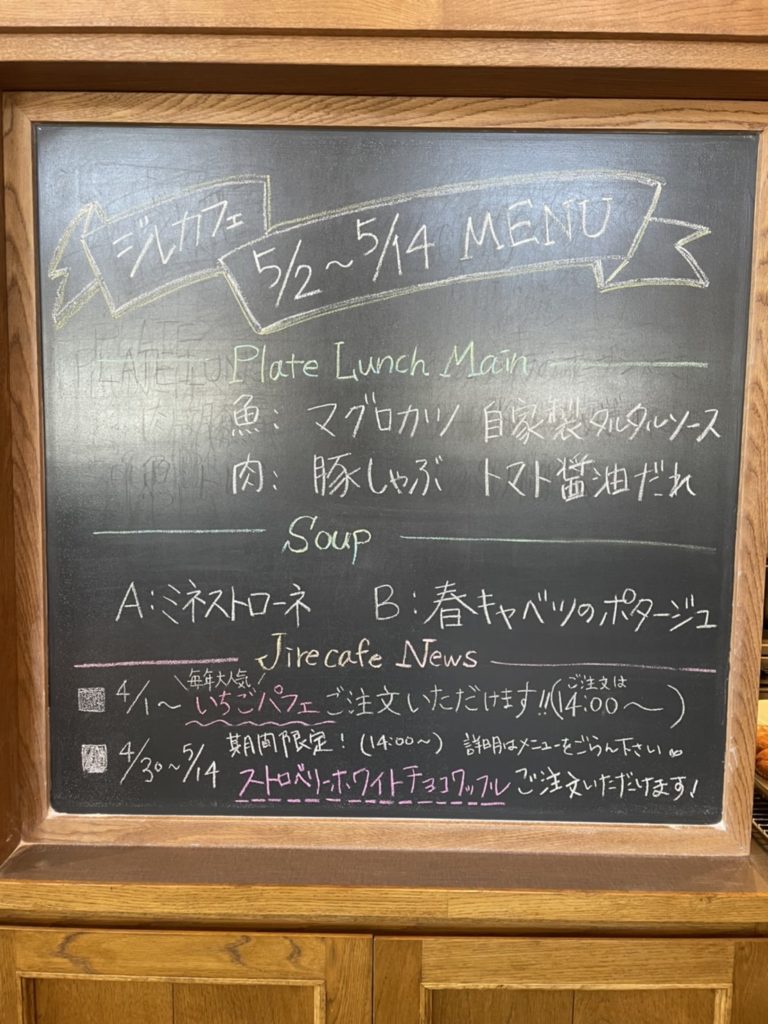 ジルカフェ
5/2〜5/14 MENU
Plate Lunch Main
魚: マグロカツ 自家製タルタルソース
肉: 豚しゃぶ トマト醤油だれ
Soup
A:ミネストローネ B:春キャベツのポタージュ
Jirecafe News
\毎年大人気/
4/1〜いちごパフェご注文いただけます!!(ご注文は14:00〜)
4/30〜5/14 期間限定!(14:00〜) 詳細はメニューをごらん下さい。
ストロベリーホワイトチョコワッフルご注文いただけます!